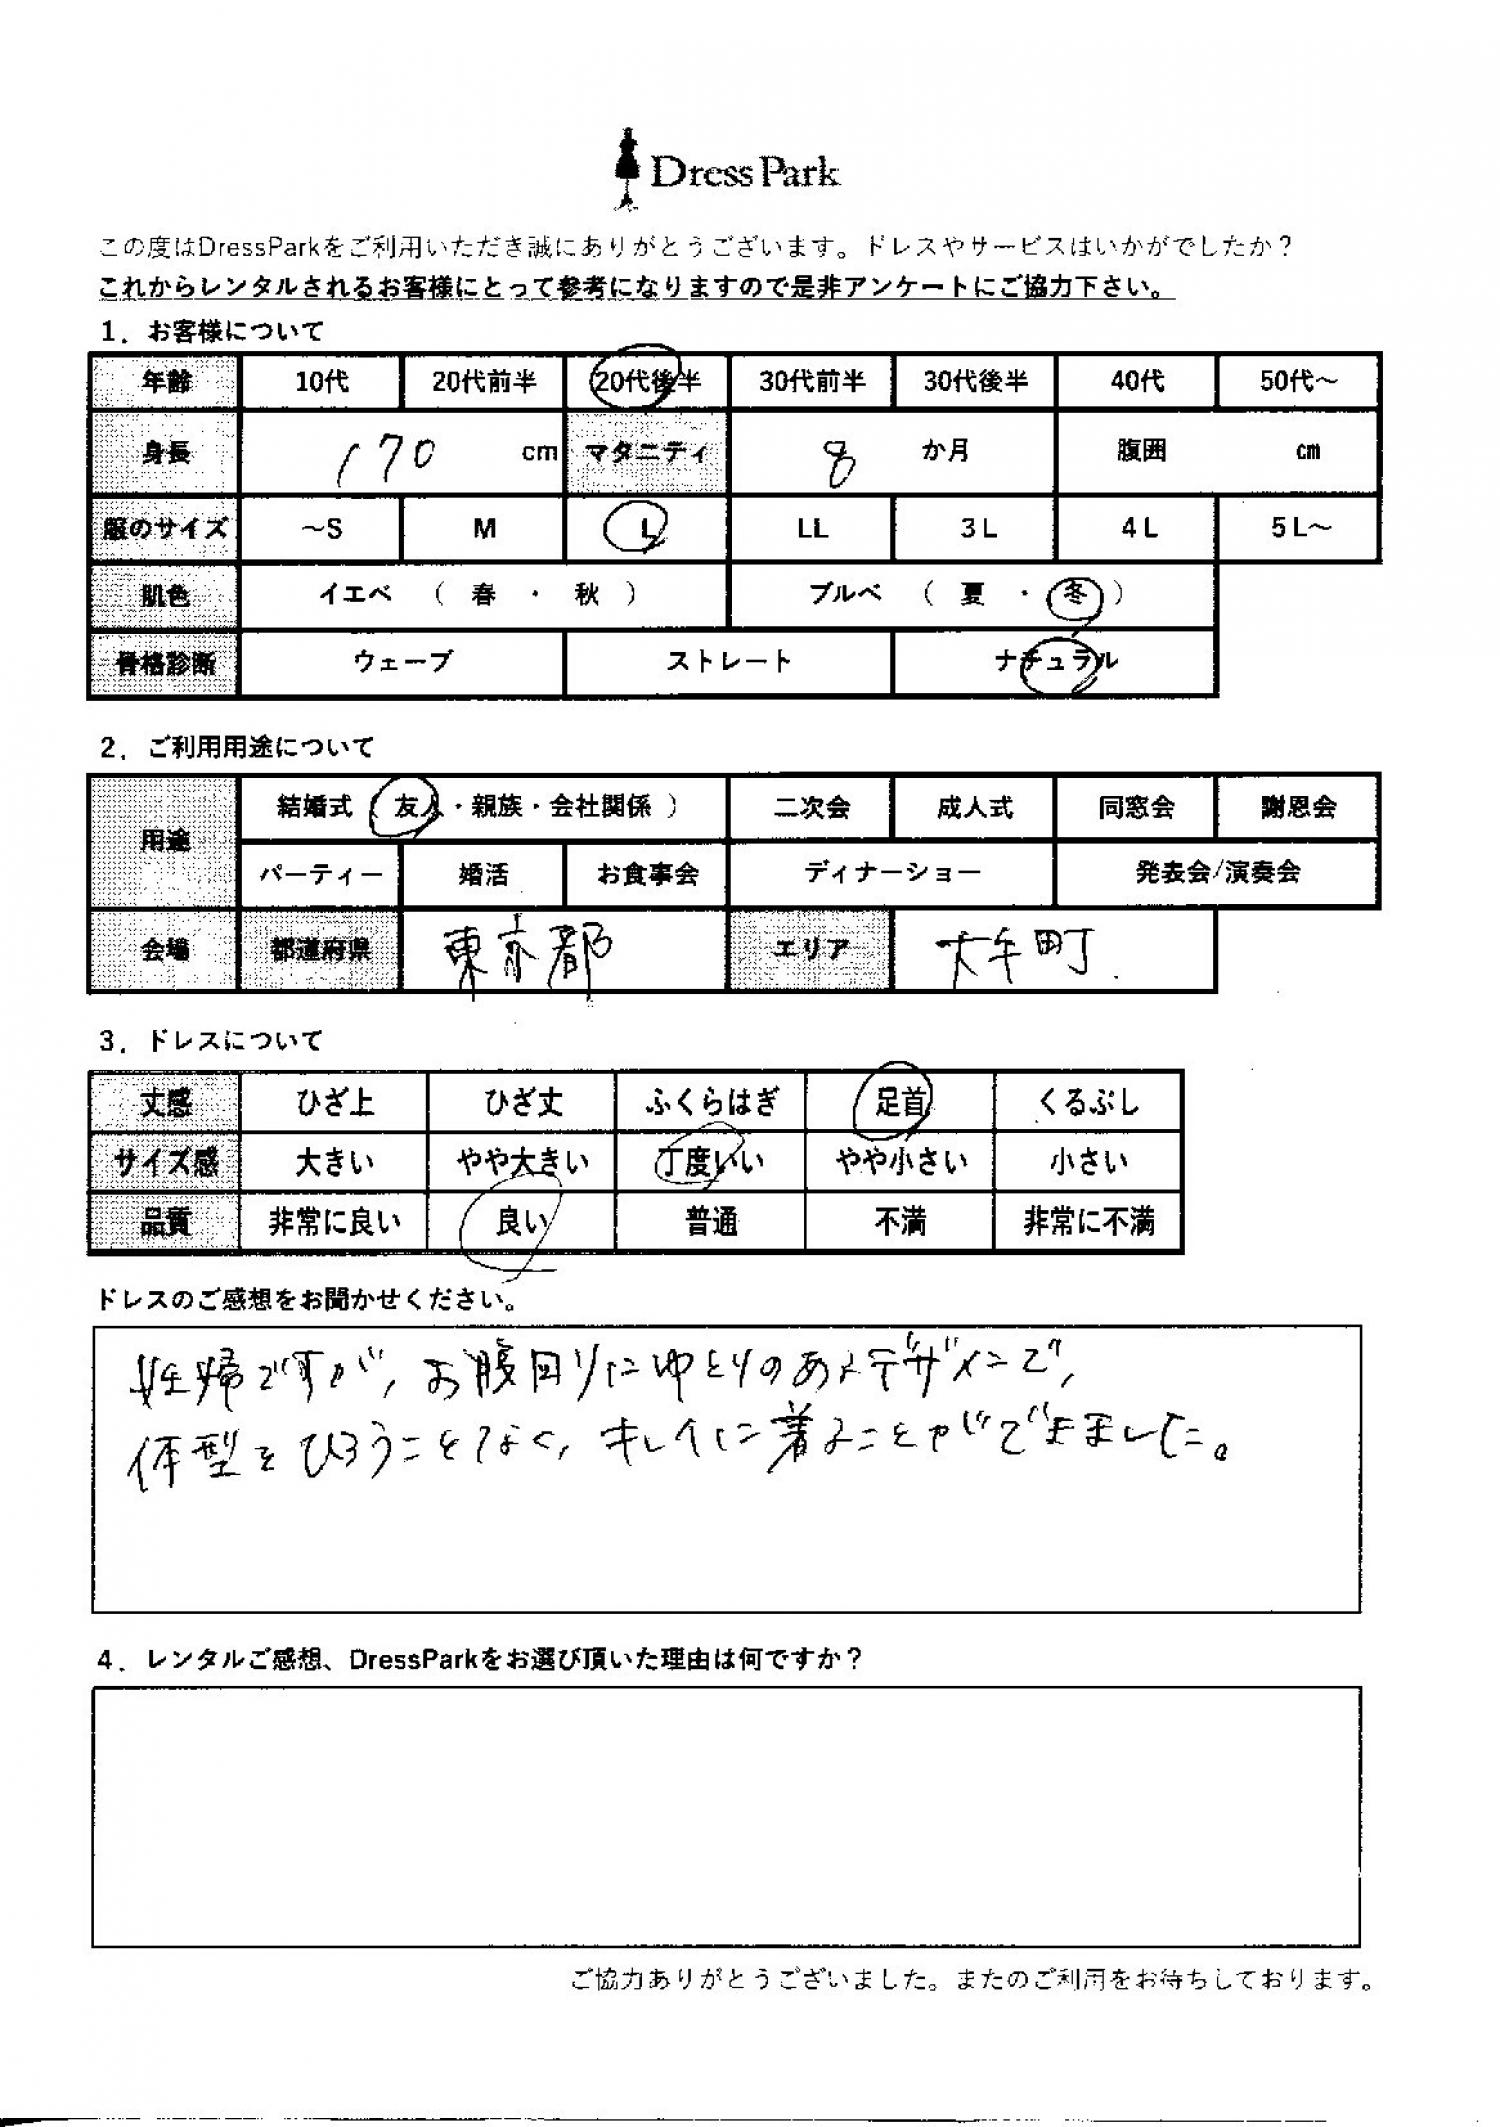 DressPark
この度はDressParkをご利用いただき誠にありがとうございます。ドレスやサービスはいかがでしたか？
これからレンタルされるお客様にとって参考になりますので是非アンケートにご協力下さい。
1．お客様について
年齢 10代 20代前半 20代後半 30代前半 30代後半 40代 50代～
身長 170 cm マタニティ 8 か月 腹囲 cm
服のサイズ ～S M L LL 3L 4L 5L～
肌色 イエベ （ 春 ・ 秋 ） ブルベ （ 夏 ・ 冬 ）
骨格診断 ウェーブ ストレート ナチュラル
2．ご利用用途について
用途 結婚式（ 友人・親族・会社関係 ） 二次会 成人式 同窓会 謝恩会
パーティー 婚活 お食事会 ディナーショー 発表会/演奏会
会場 都道府県 東京都 エリア 大手町
3．ドレスについて
丈感 ひざ上 ひざ丈 ふくらはぎ 足首 くるぶし
サイズ感 大きい やや大きい 丁度いい やや小さい 小さい
品質 非常に良い 良い 普通 不満 非常に不満
ドレスのご感想をお聞かせください。
妊婦ですが、お腹回りにゆとりのあるデザインで、
体型をひろうことなく、キレイに着ることができました。
4．レンタルご感想、DressParkをお選び頂いた理由は何ですか？
ご協力ありがとうございました。またのご利用をお待ちしております。